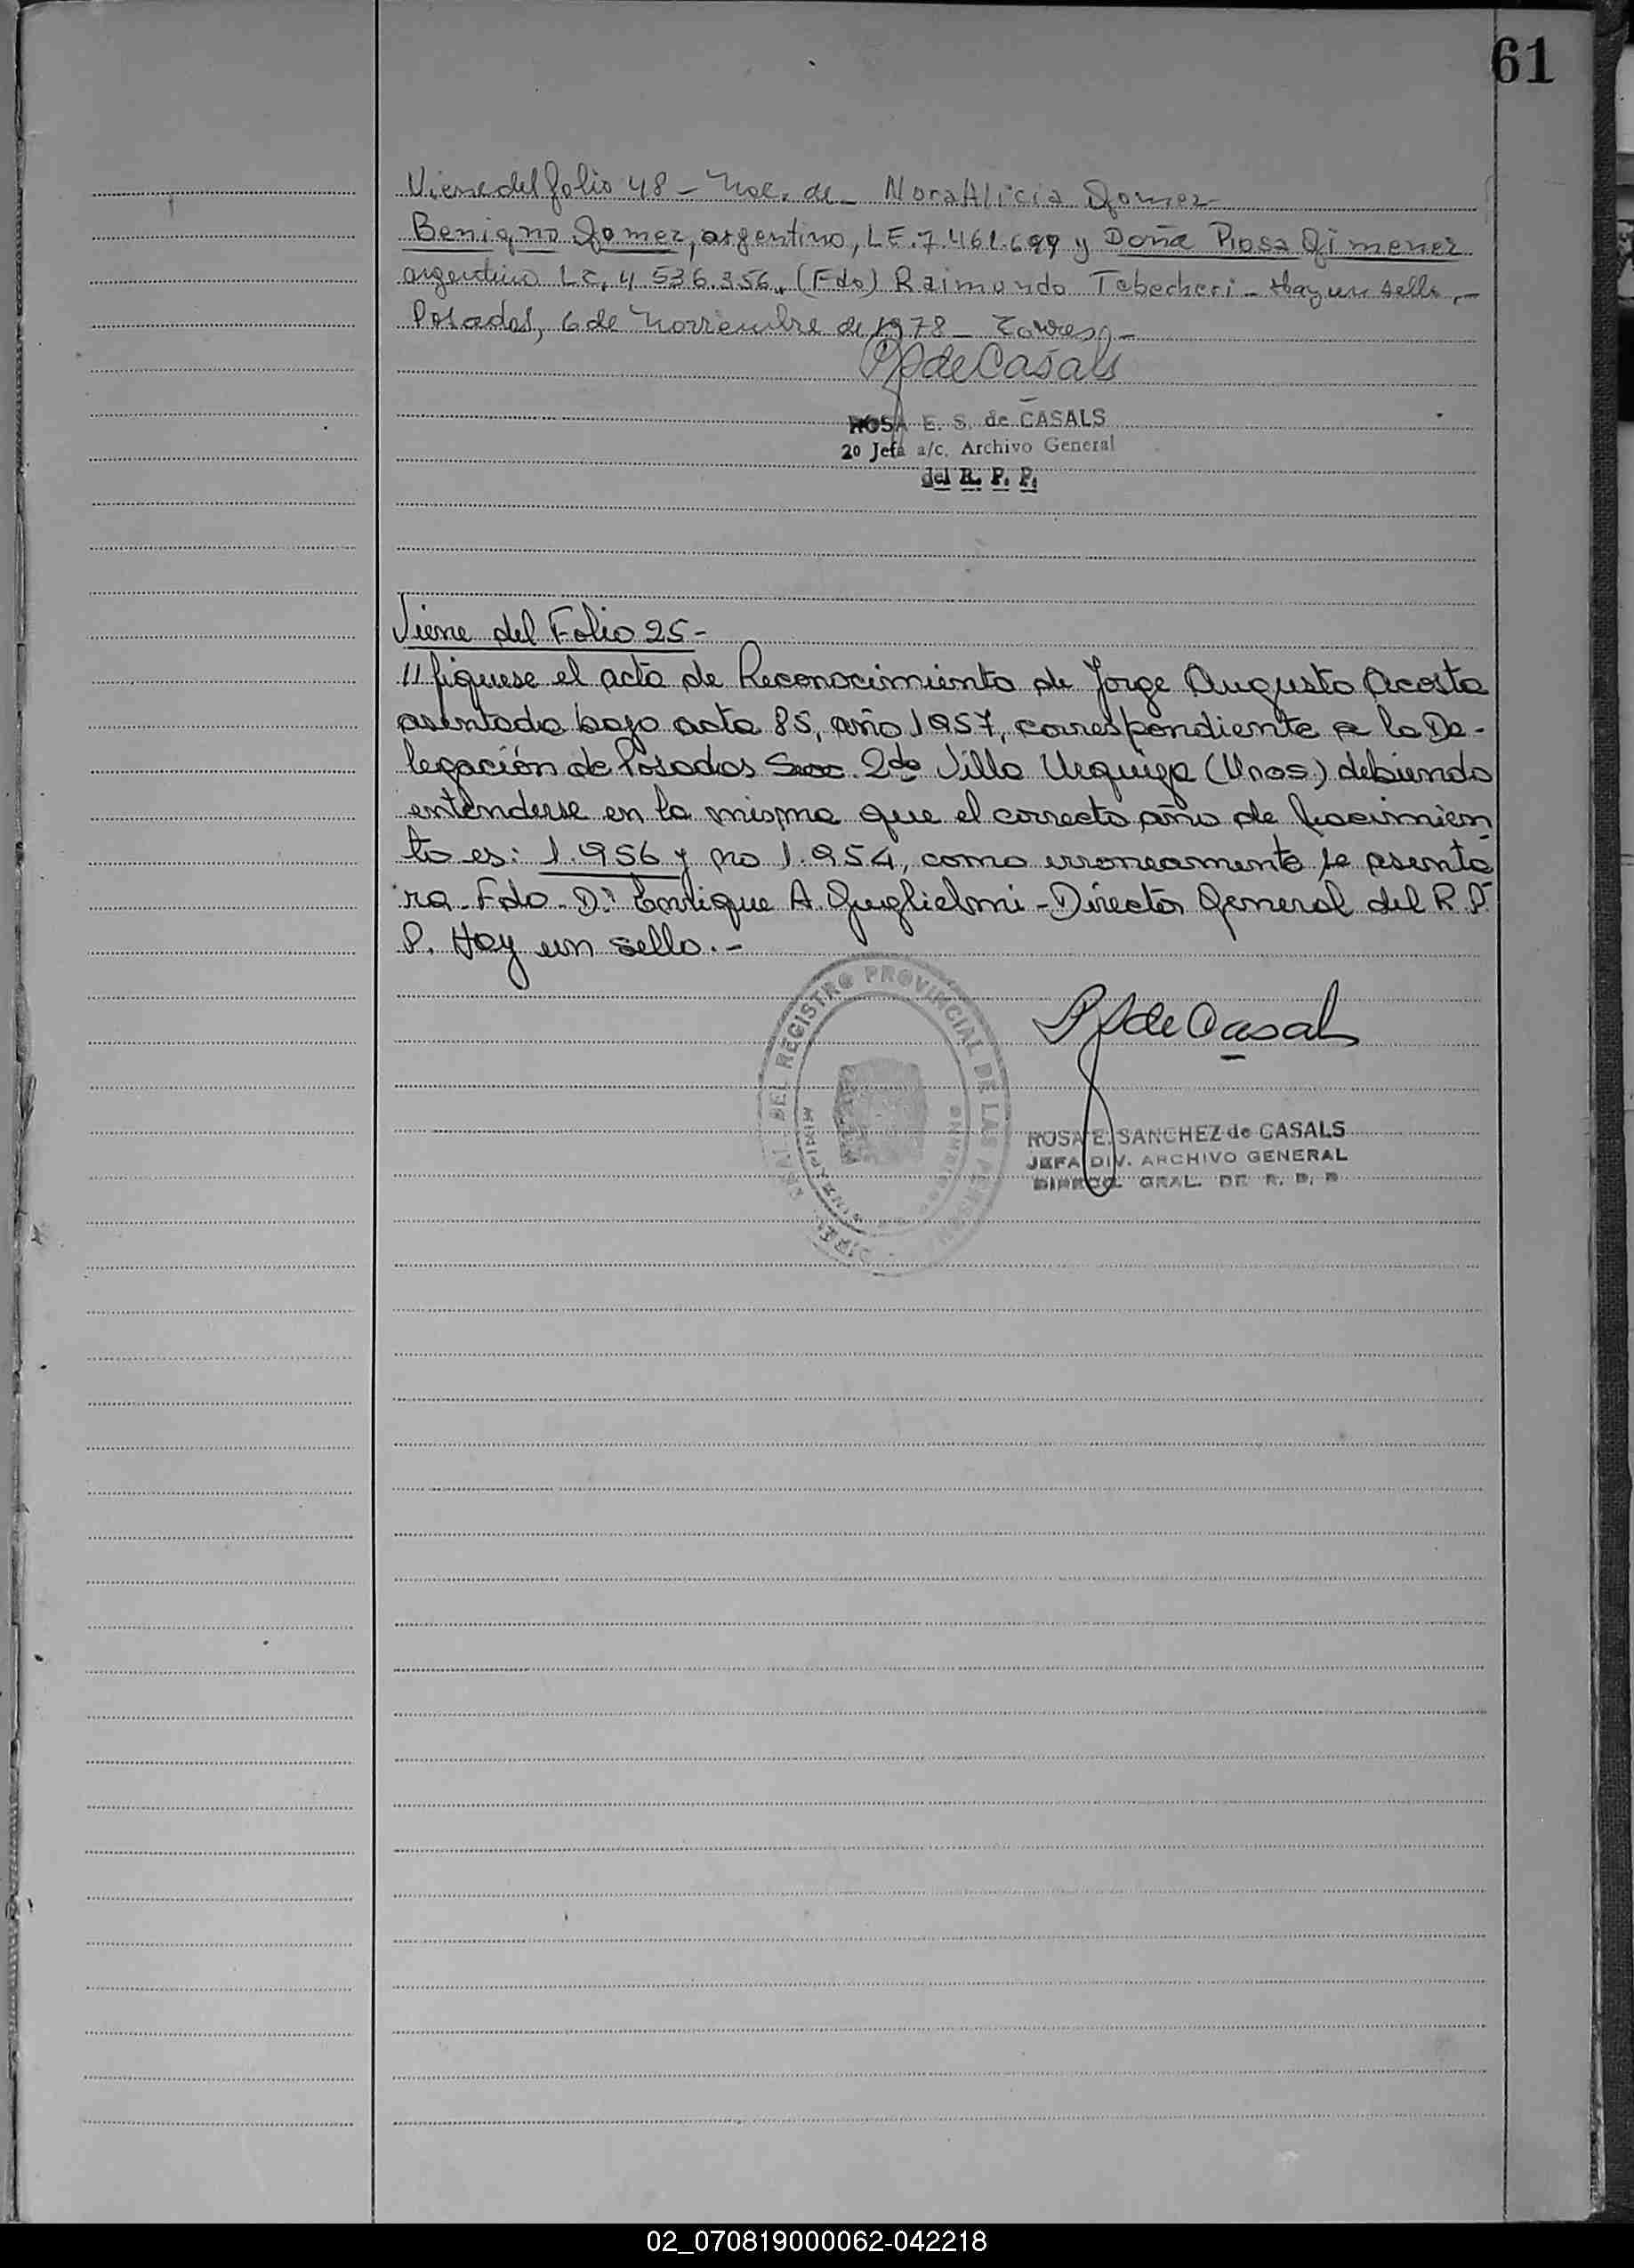 61
Viene del folio 48 - Nac. de - Nora Alicia Gomez
Benigno Gomez, argentino, L.E. 7.461.699 y Doña Rosa Gimenez
argentina L.C. 4 536.356. (Fdo) Raimundo Tebecheri - Hay un sello.-
Posadas, 6 de Noviembre de 1978 -
RS de Casals
ROSA E. S. de CASALS
20 Jefa a/c. Archivo General
del R. P. P.
Viene del Folio 25-
11 fíquese el acta de Reconocimiento de Jorge Augusto Acosta
asentada bajo acta 85, año 1957, correspondiente a la De-
legación de Posadas Secc. 2da Villa Urquiza (Mnes) debiendo
entenderse en la misma que el correcto año de Nacimien
to es: 1.956 y no 1.954, como erroneamente se asenta
ra. Fdo. Dr. Enrique A. Guglielmi - Director General del R. P.
P. Hay un sello.-
RS de Casals
REGISTRO PROVINCIAL DE LAS PERSONAS
ROSA E. SANCHEZ de CASALS
JEFA DIV. ARCHIVO GENERAL
DIRECC. GRAL. DE R. P. P.
02_070819000062-042218